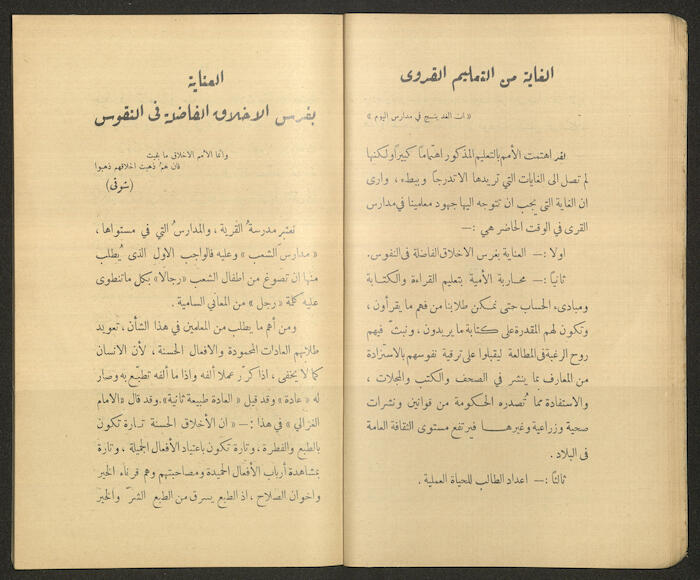 الغاية من التعليم القروى
« ان الغد ينسج في مدارس اليوم »
لقد اهتمت الأمم بالتعليم المذكور اهتماماً كبيراً ولكنها
لم تصل الى الغايات التي تريدها الا تدرجاً وببطء ، وارى
ان الغاية التي يجب ان تتوجه اليها جهود معلمينا في مدارس
القرى في الوقت الحاضر هي :—
اولا :— العناية بغرس الاخلاق الفاضلة في النفوس.
ثانياً :— محاربة الأمية بتعليم القراءة والكتابة
ومبادىء الحساب حتى نمكن طلابنا من فهم ما يقرأون ،
وتكون لهم المقدرة على كتابة ما يريدون ، ونبث فيهم
روح الرغبة في المطالعة ليقبلوا على ترقية نفوسهم بالاستزادة
من المعارف بما ينشر في الصحف والكتب والمجلات ،
والاستفادة مما تُصدره الحكومة من قوانين ونشرات
صحية وزراعية وغيرها فيرتفع مستوى الثقافة العامة
في البلاد .
ثالثاً :— اعداد الطالب للحياة العملية .
العناية
بغرس الاخلاق الفاضلة فى النفوس
وانما الأمم الاخلاق ما بقيت
فان همُ ذهبت اخلاقهم ذهبوا
(شوقى)
تعتبر مدرسة القرية ، والمدارس التي في مستواها ،
« مدارس الشعب » وعليه فالواجب الاول الذى يُطلب
منها ان تصوغ من اطفال الشعب « رجالاً » بكل ما تنطوى
عليه كلمة « رجل » من المعاني السامية .
ومن أهم ما يطلب من المعلمين في هذا الشأن ، تعويد
طلابهم العادات المحمودة والافعال الحسنة ، لأن الانسان
كما لا يخفى ، اذا كرّر عملا ألفه واذا ما ألفه تطبّع به وصار
له « عادة » وقد قيل « العادة طبيعة ثانية » . وقد قال « الامام
الغزالي » في هذا :— « ان الأخلاق الحسنة تارة تكون
بالطبع والفطرة ، وتارة تكون باعتياد الأفعال الجميلة ، وتارة
بمشاهدة أرباب الأفعال الحميدة ومصاحبتهم وهم قرناء الخير
واخوان الصلاح ، اذ الطبع يسرق من الطبع الشرّ والخير